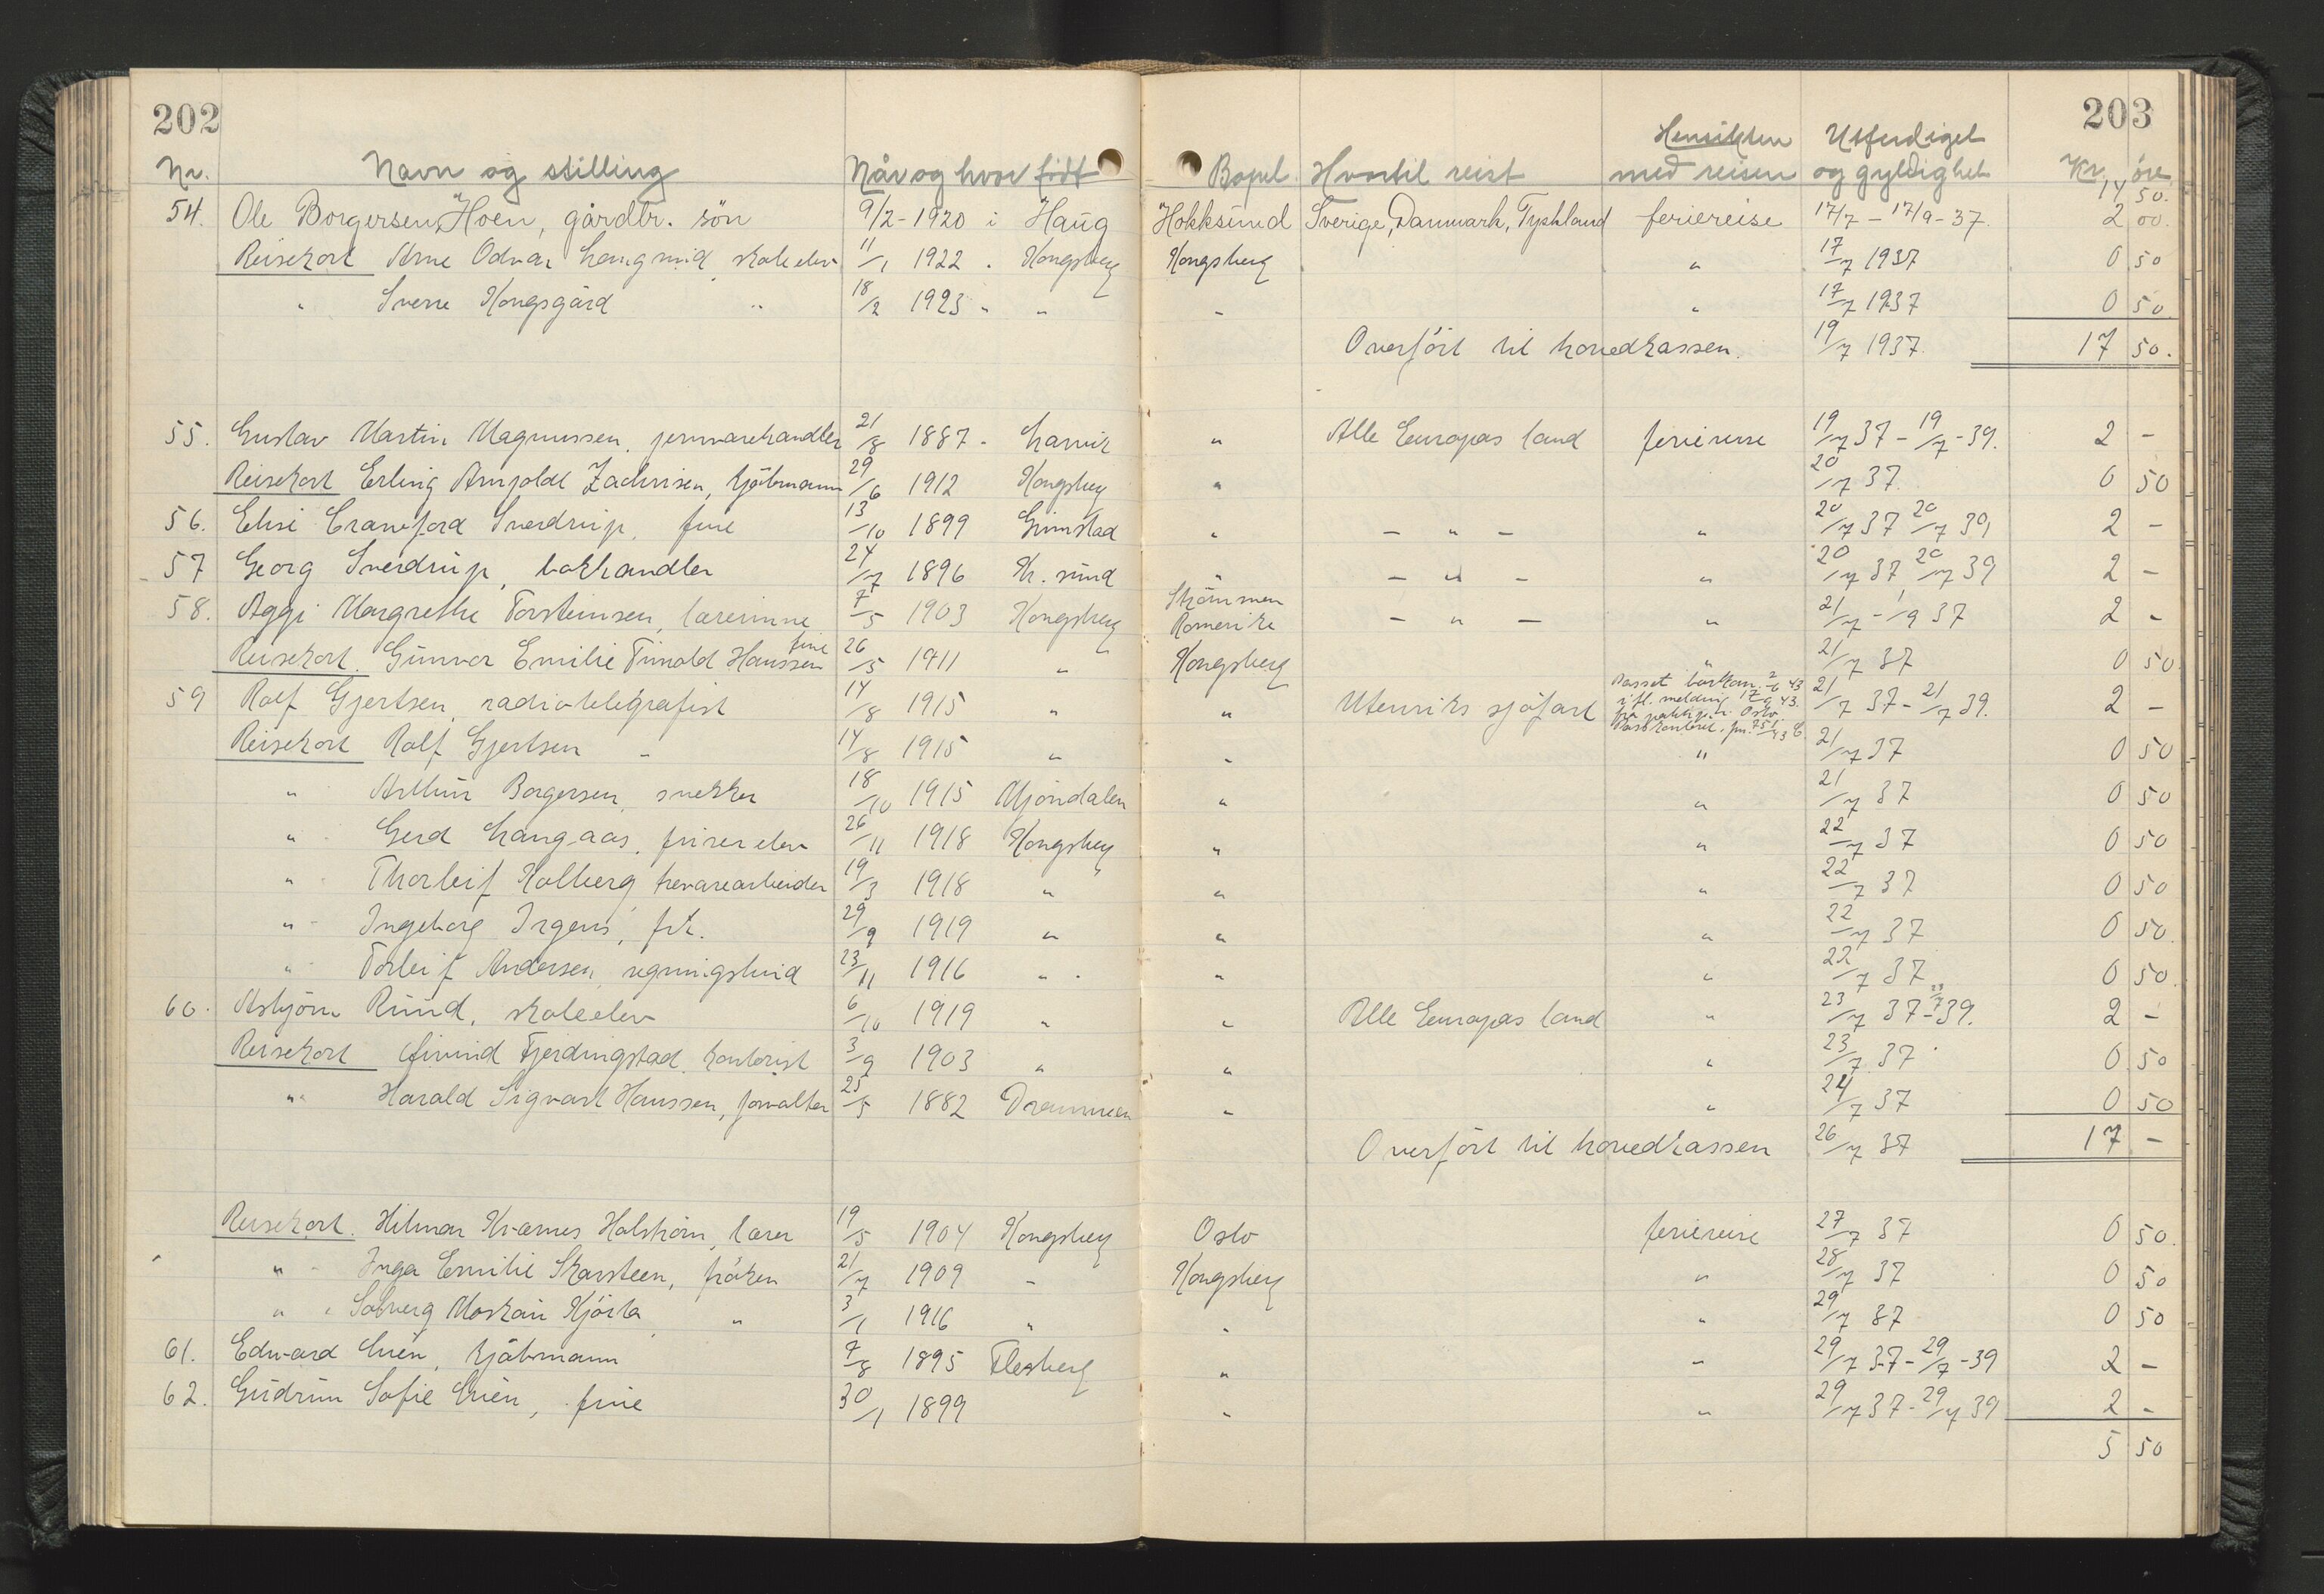 202 203
Nr. Navn og stilling Når og hvor født Bopel Hvortil reist Hensikten med reisen Utferdiget og gyldighet Kr. øre
14 50.
54. Ole Borgersen Hoen, gårdbr. søn 9/2-1920 i Haug Hokksund Sverige, Danmark, Tyskland feriereise 17/7 - 17/9-37. 2 00.
Reisekort Arne Odvar Langmid skoleelev 11/1 1922 . Kongsberg Kongsberg " 17/7 1937 0 50
" Sverre Kongsgård " 18/2 1923 " " " " 17/7 1937 0 50.
Overført til hovedkassen. 19/7 1937. 17 50.
55. Gustav Martin Magnussen, jernvarehandler 21/8 1887 - Larvik " Alle Europas land feriereise 19/7 37 - 19/7 - 39. 2 -
Reisekort Erling Arnfoldt Zachrisen, kjøbmann 29/6 1912 Kongsberg " 20/7 37. 0 50
56. Elisi Crawford Sverdrup, frue 13/10 1899 Grimstad " - " - " 20/7 37 20/7 39 2 -
57 Georg Sverdrup, bokhandler 24/7 1896 Kr. sund " - " - " 20/7 37 20/7 39 2 -
58. Aggi Margrethe Torsteinsen, lærerinne 7/5 1903 Kongsberg Strømmen Romerike - " - " 21/7 - 1/9 37 2 -
Reisekort. Gunvor Emilie Timold Hanssen frue 26/5 1911 " Kongsberg " 21/7 37 0 50.
59 Rolf Gjertsen, radiotelegrafist 14/8 1915 " " Utenriks sjøfart 21/7 37 - 21/7 39. 2 -
Passet bortkom. 2/6 43
ifl. melding 17/9 43.
fra Oslo
Passkontoret, jnr. 751/43 C
Reisekort Rolf Gjertsen - 14/8 1915 " " " 21/7 37 0 50
" Arthur Borgersen, snekker 18/10 1915 Mjøndalen " " 21/7 37 0 50
" Gerd Langaas, friserelev 26/11 1918 Kongsberg " " 22/7 37 0 50
" Thorleif Kolberg trevarearbeider 19/3 1918 " " " 22/7 37 0 50
" Ingeborg Irgens, frk. 29/9 1919 " " " 22/7 37 0 50.
" Torleif Andersen, regningshvid 23/11 1916 " " " 22/7 37 0 50.
60. Asbjørn Ruud, skoleelev 6/10 1919 " " Alle Europas land " 23/7 37 - 23/7 39. 2 -
Reisekort Eivind Fjerdingstad kontorist 3/9 1903 " " " 23/7 37 0 50
" Harald Sigvart Hanssen, forvalter 25/5 1882 Drammen " " 24/7 37 0 50
Overført til hovedkassen 26/7 37 17 -
Reisekort. Hilmar Kvarnes Holstrøm, lærer 19/5 1904 Kongsberg Oslo feriereise 27/7 37 0 50.
" Inga Emilie Skarsteen, frøken 21/7 1909 - Kongsberg " 28/7 37 0 50
" Solveig Moskau Kjørla " 3/1 1916 " " " 29/7 37 0 50
61. Edvard Lien, kjøbmann 7/8 1895 Flesberg " " 29/7 37 - 29/7 - 39 2 -
62. Gudrun Sofie Lien, frue 30/1 1899 " " 29/7 37 - 29/7 39 2 -
5 50